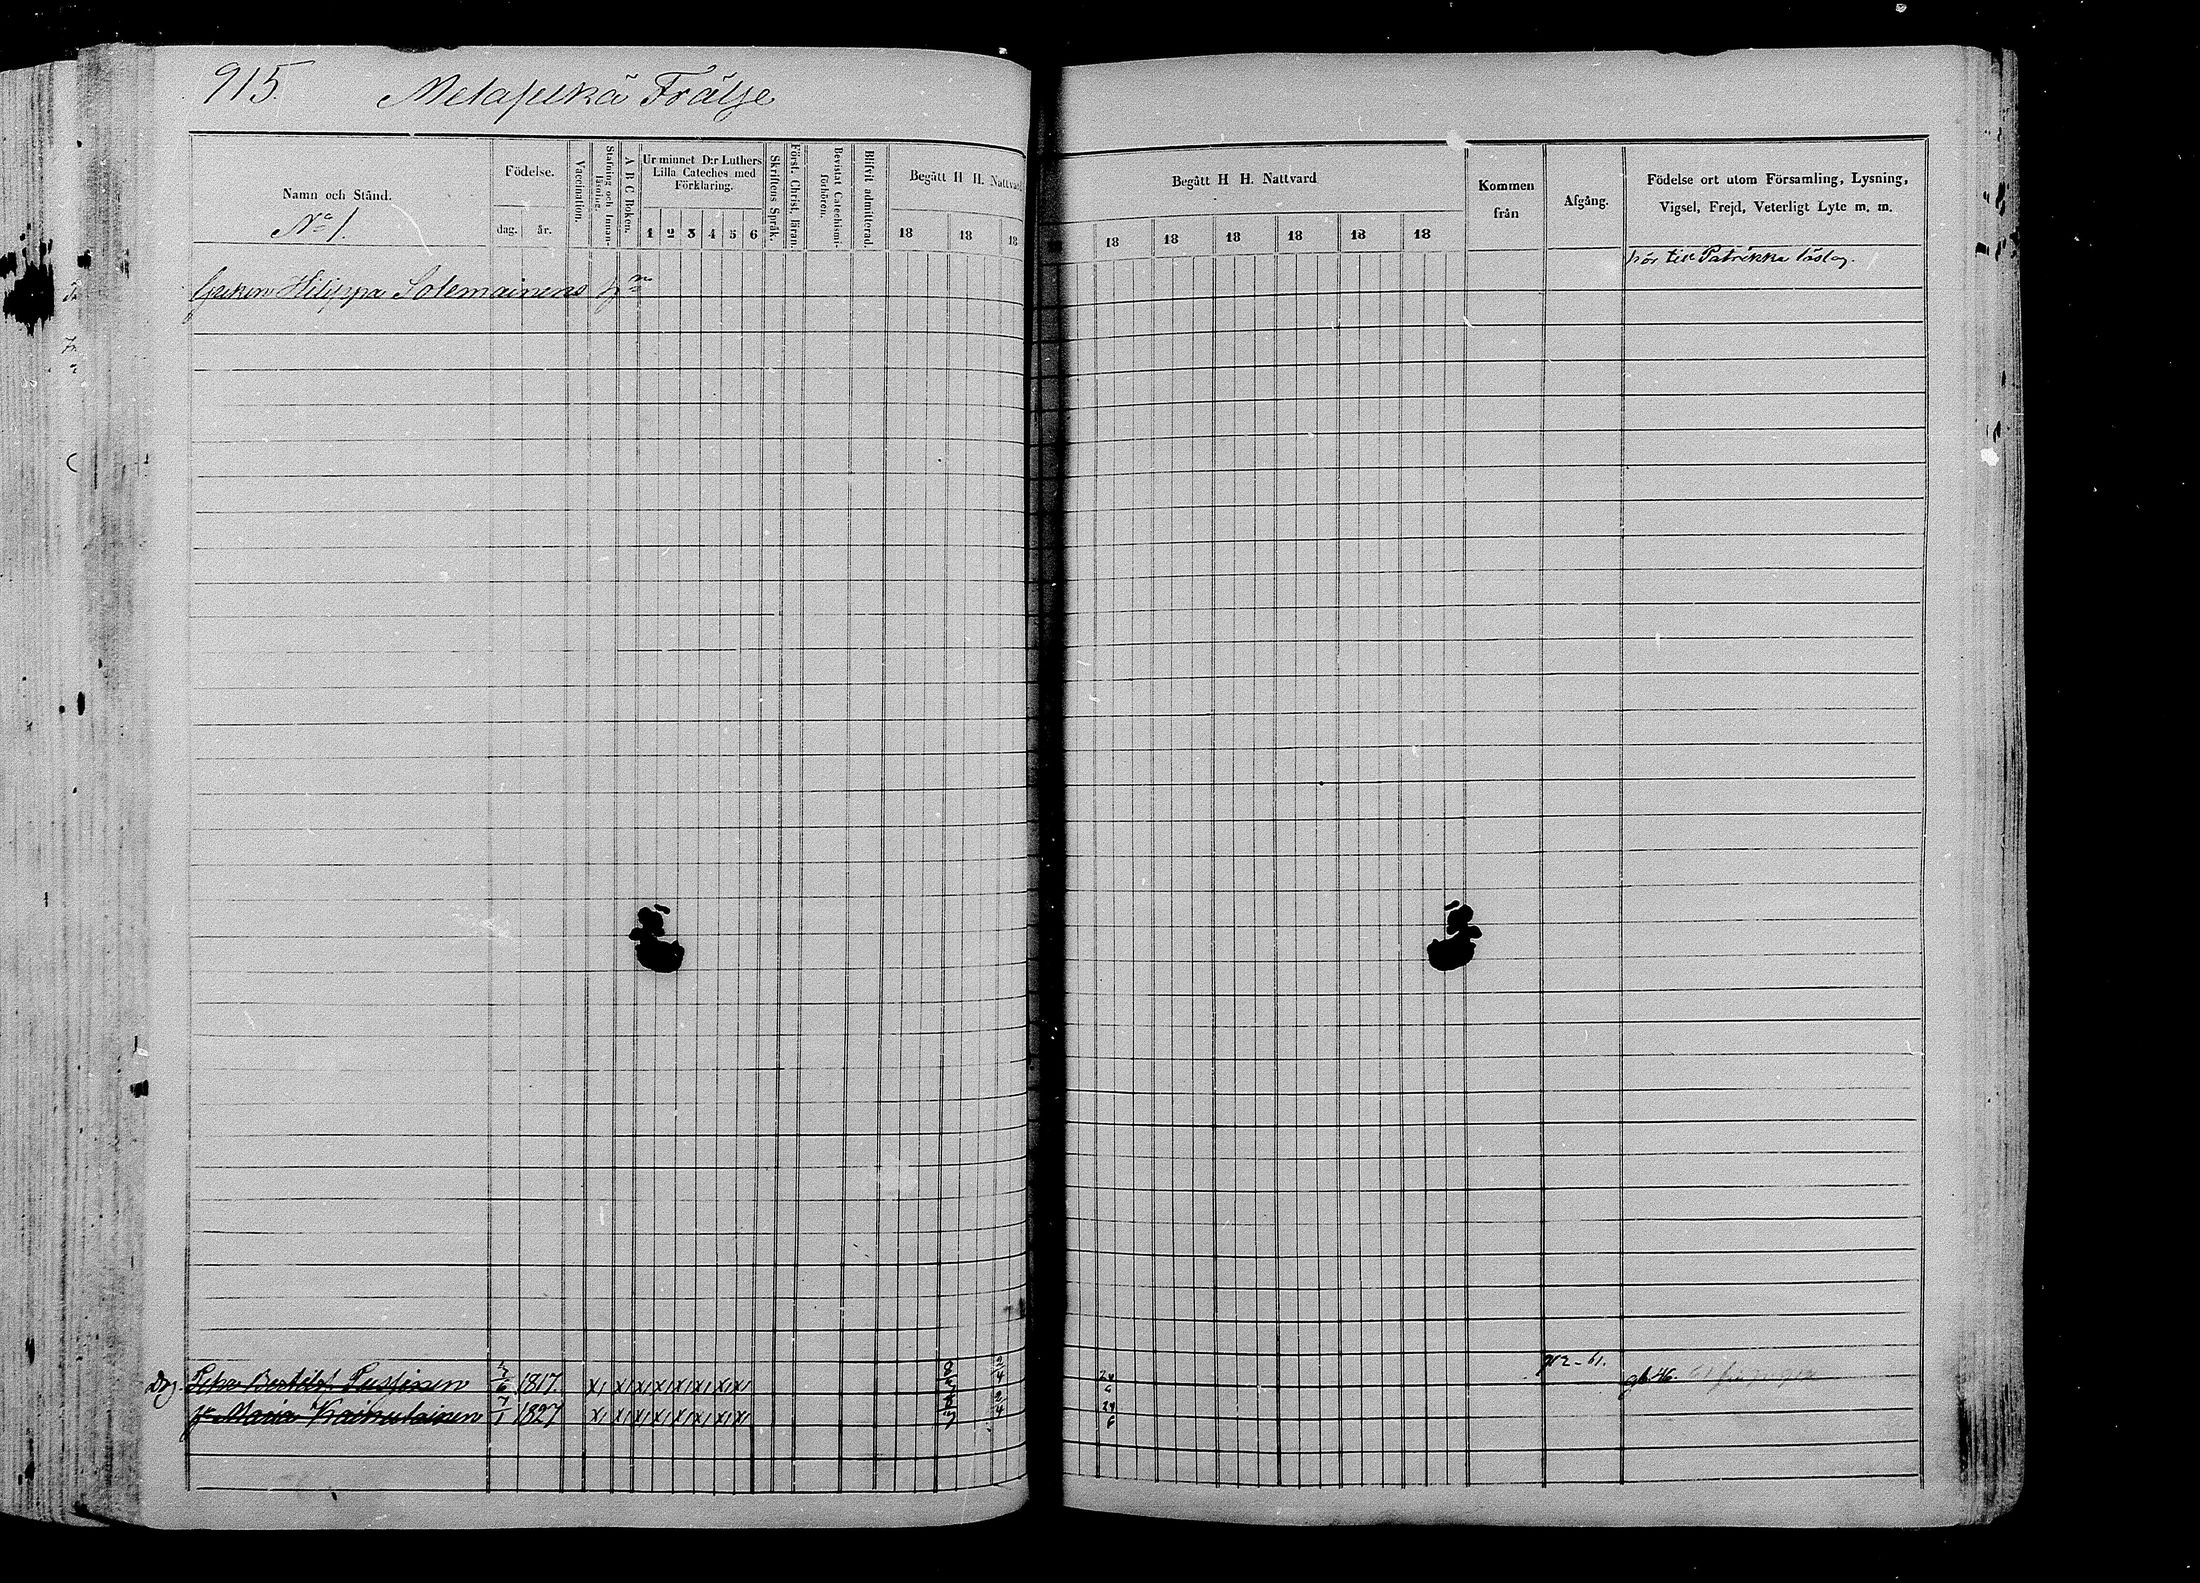 915.
Metapirkä Frälse
Namn och Stånd.
Födelse.
dag. år.
Vaccination.
Stafning och Innanläsning.
A B C Boken.
Ur minnet D:r Luthers
Lilla Cateches med
Förklaring.
1 2 3 4 5 6
Skriftens Språk.
Först. Christ. läran.
Bevistat Catechismiförhören.
Blifvit admitterad.
Begått H H. Nattvard
18 18 18
Begått H H. Nattvard
18 18 18 18 18 18
Kommen
från
Afgång.
Födelse ort utom Församling, Lysning,
Vigsel, Frejd, Veterligt Lyte m. m.
No 1.
hör till Patrikka läslag.
Hilippa Solemainens
912-61.
Drg. Pekka Bertilss. Pussinen 3/6 1817. x x x x x x x x 8/7 2/4 24/6 gb 46.
h. Maria Kaikulainen 7/1 1827 x x x x x x x x 8/7 2/4 24/6